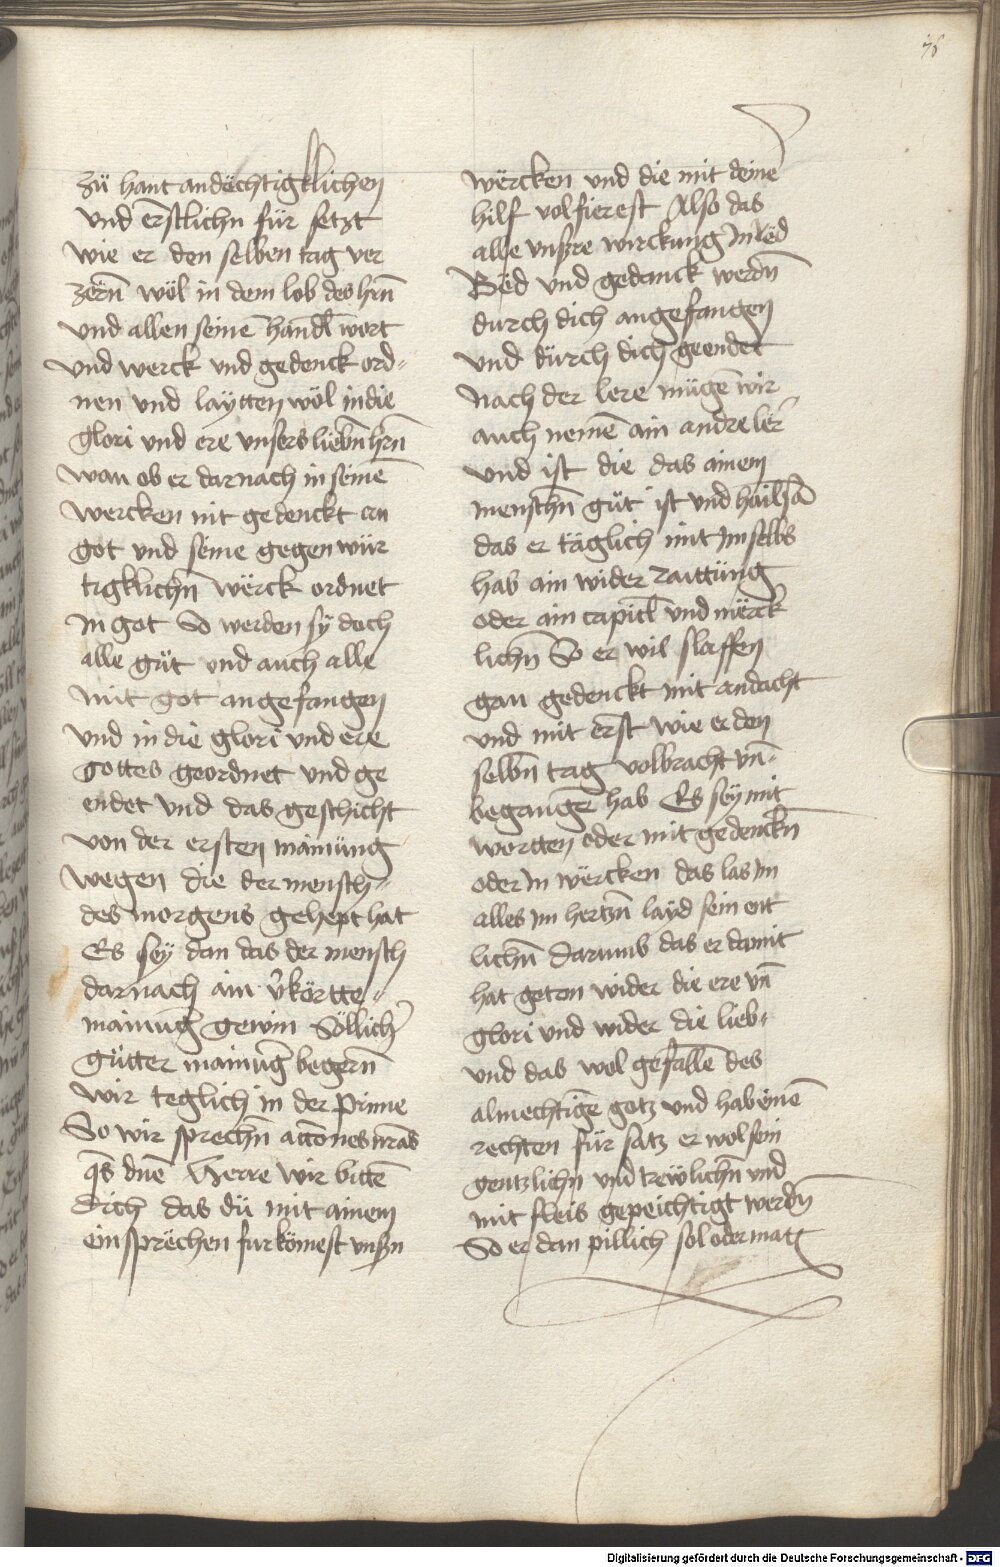 76
zü hant andëchtigklichen
und erstlichn für setzt
wie er den selben tag ver
zern̄ wöl in dem lob des hrn̄
und allen seinē handl wort
und werck und gedenck ord-
nen und laytten wöl in die
glori und ere unsers liebn̄ hrn̄
wan ob er darnach in seinē
wercken nit gedenckt an
got und seine gegenwür
tigklichn̄ wërck ordnet
In got So werden sÿ doch
alle güt und auch alle
mit got angefangen
und in die glori und ere
gottes geordnet und ge
endet und das geschicht
von der ersten mainüng
wegen die der mensch
des morgens gehept hat
Es sey dan das der mensch
darnach ain v̉körtte
mainūg gewin Söllich
gütter mainūg begern̄
wir teglich in der Prime
So wir sprechn̄ actōnes nrās
qs̄ dnē Herre wir bittē
dich das dü mit ainem
einsprëchen furkömest unßn
wërcken und die mit deinē
hilf volfierest Also das
alle unßre wirckung In rëd
Bëd und gedanck werdn̄
durch dich angefangen
und dürch dich geendet
Nach der lere mügē wir
auch nemē ain andre ler
und ist die das ainem
menschn̄ güt ist und hailsā
das er täglich mit Im selbs
hab ain wider raittüng
oder ain capitl und mërck
lichn̄ So er wil slaffen
gan gedenckt mit andacht
und mit ernst wie er den
selbn̄ tag volbracht un̄
begangē hab Es sey mit
wortten oder mit gedenckn̄
oder In wërcken das las im
alles im hertzn̄ layd sein ent
lichn̄ darumb das er damit
hat geton wider die ere un̄
glori und wider die lieb
und das wol gefallē des
almechtigē gotz und hab einē
rechten für satz er wol sein
gentzlichn und trëwlichn̄ und
mit fleis gepeichtigt werdn̄
So er dan pillich sol oder mag
Digitalisierung gefördert durch die Deutsche Forschungsgemeinschaft - DFG